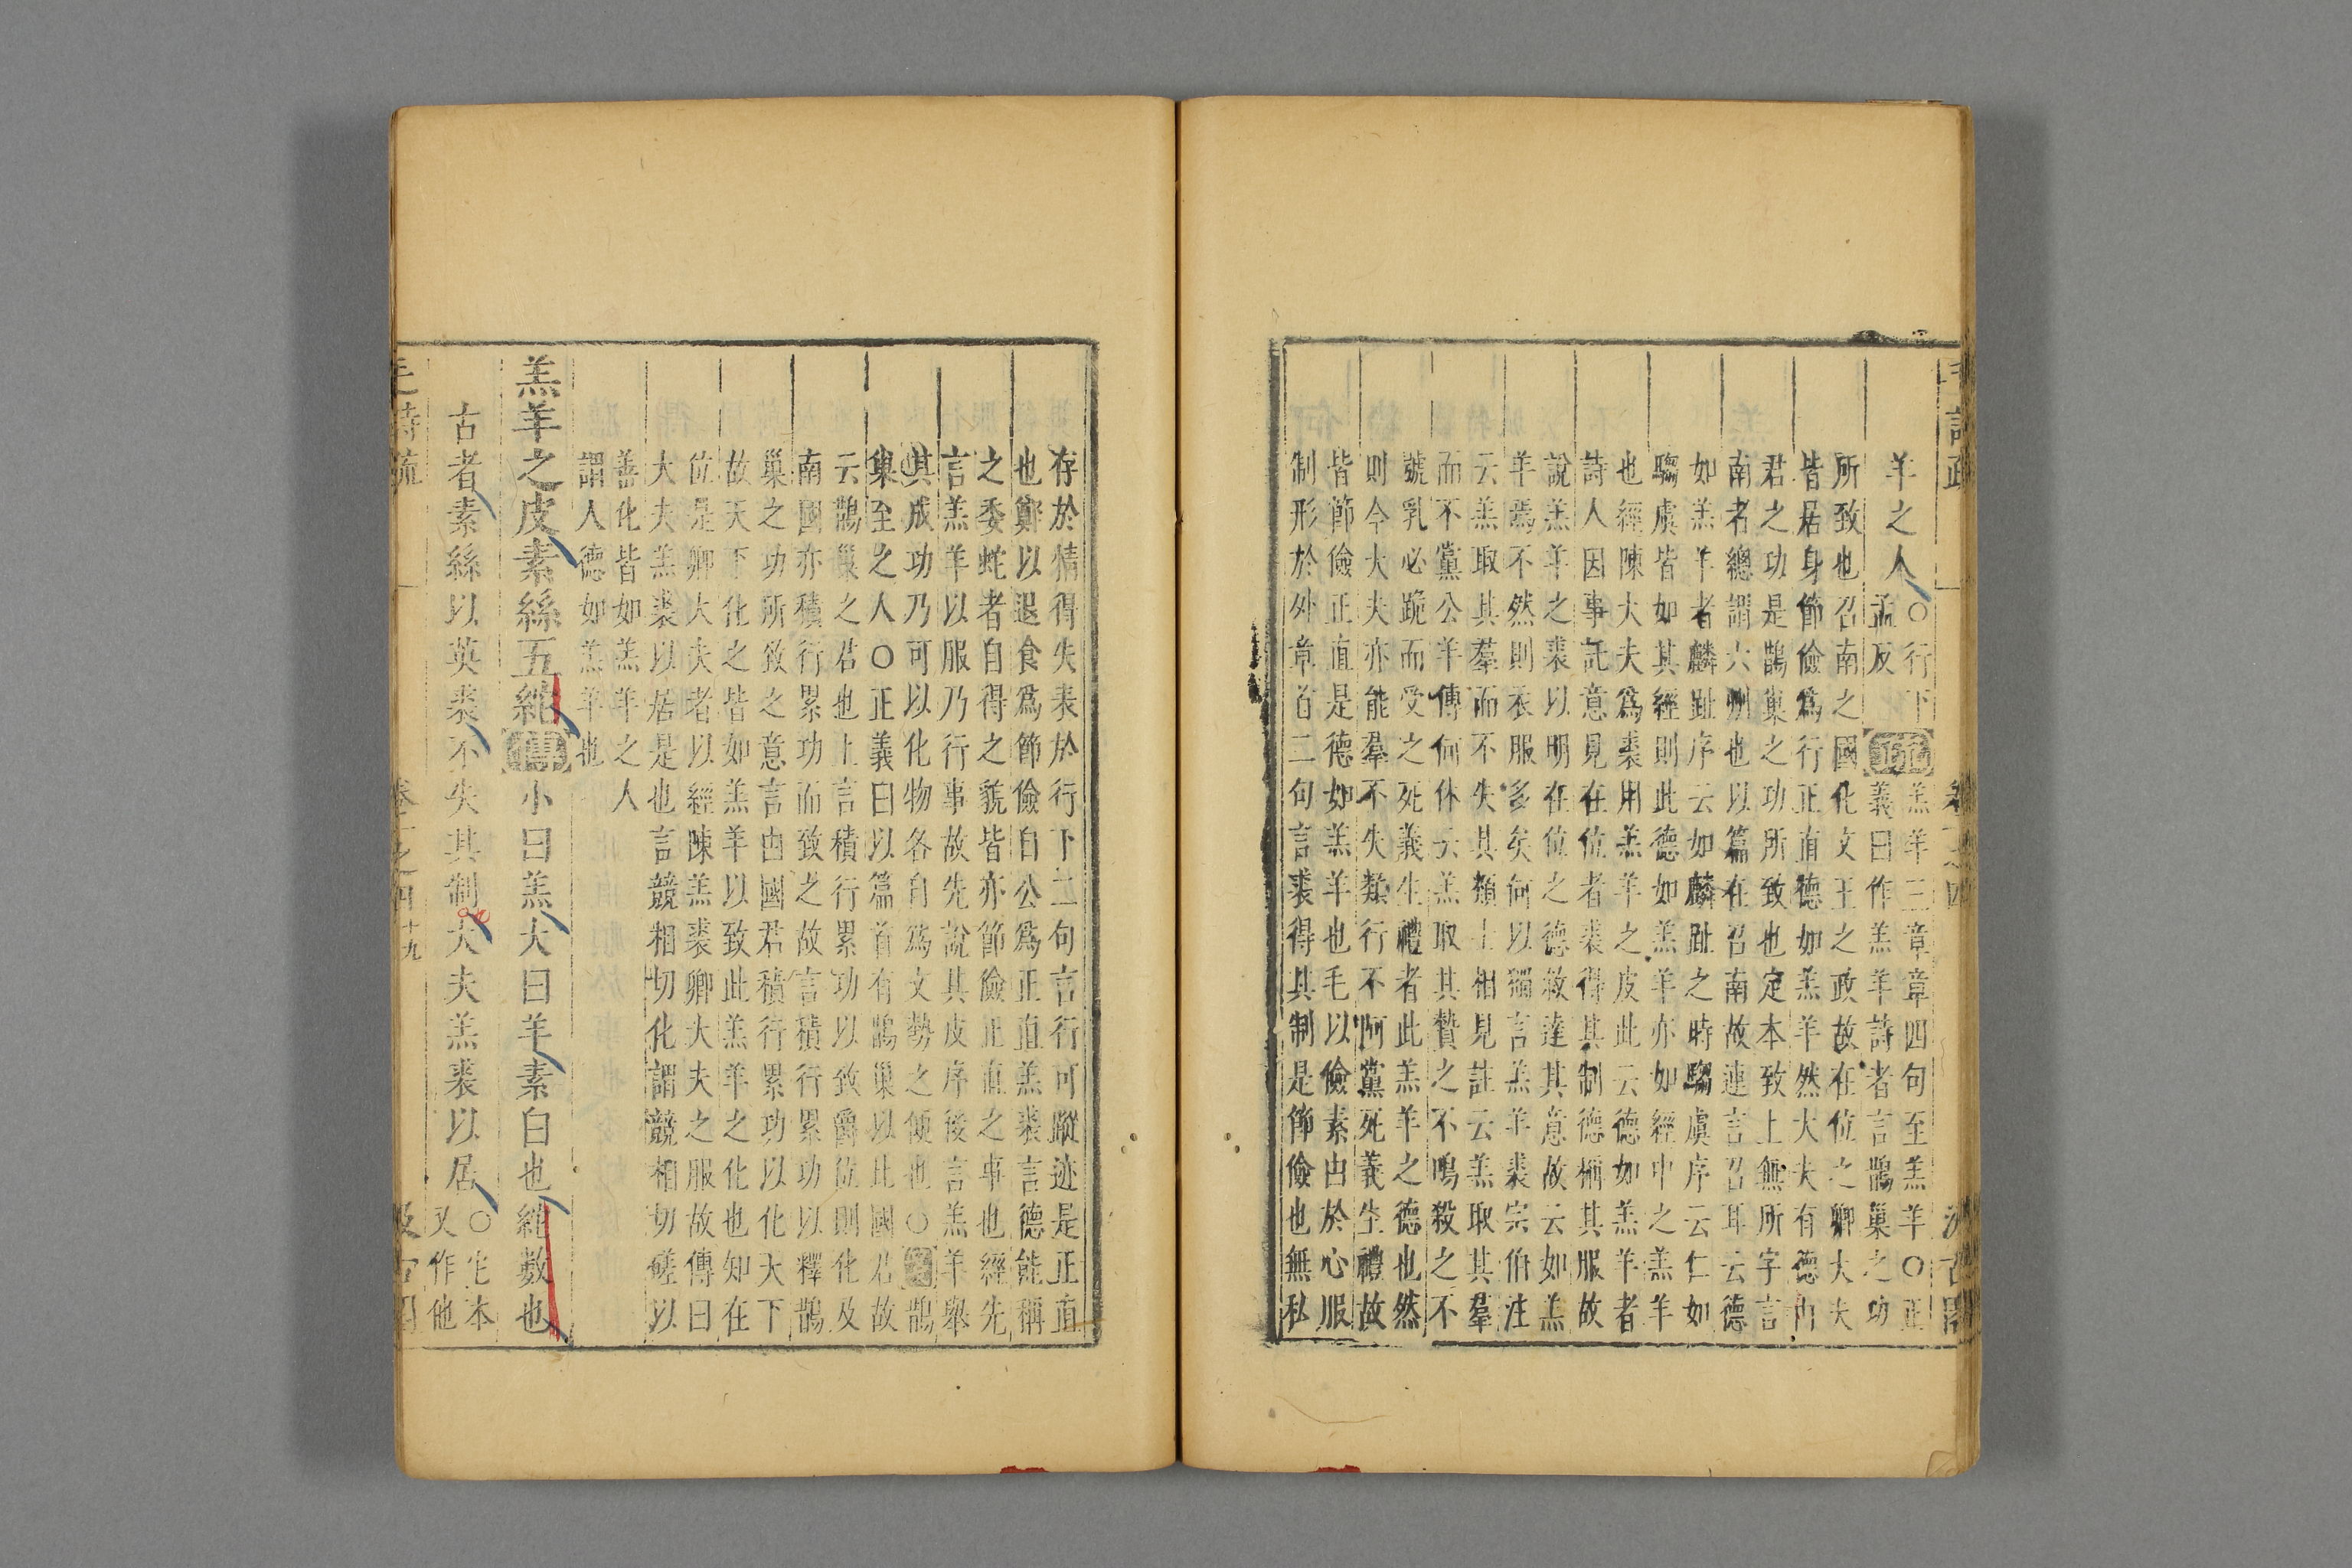 毛詩疏 卷一之四 汲古閣
羊之人○行下孟反疏羔羊三章章四句至羔羊○正
義曰作羔羊詩者言鵲巢之功
所致也召南之國化文王之政故在位之卿大夫
皆居身節儉爲行正直德如羔羊然大夫有德由
君之功是鵲巢之功所致也定本致上無所字言
南者總謂六州也以篇在召南故連言召耳云德
如羔羊者麟趾序云如麟趾之時騶虞序云仁如
騶虞皆如其經則此德如羔羊亦如經中之羔羊
也經陳大夫爲裘用羔羊之皮此云德如羔羊者
詩人因事託意見在位者裘得其制德稱其服故
說羔羊之裘以明在位之德敘達其意故云如羔
羊焉不然則衣服多矣何以獨言羔羊裘宗伯注
云羔取其羣而不失其類士相見註云羔取其羣
而不黨公羊傳何休云羔取其贄之不鳴殺之不
號乳必跪而受之死義生禮者此羔羊之德也然
則今大夫亦能羣不失類行不阿黨死義生禮故
皆節儉正直是德如羔羊也毛以儉素由於心服
制形於外章首二句言裘得其制是節儉也無私
存於情得失表於行下二句言行可蹤迹是正直
也鄭以退食爲節儉自公爲正直羔裘言德能稱
之委蛇者自得之貌皆亦節儉正直之事也經先
言羔羊以服乃行事故先說其皮序後言羔羊舉
其成功乃可以化物各自爲文勢之便也○箋鵲
巢至之人○正義曰以篇首有鵲巢以此國君故
云鵲巢之君也上言積行累功以致爵位則化及
南國亦積行累功而致之故言積行累功以釋鵲
巢之功所致之意言由國君積行累功以化天下
故天下化之皆如羔羊以致此羔羊之化也知在
位是卿大夫者以經陳羔裘卿大夫之服故傳曰
大夫羔裘以居是也言競相切化謂競相切磋以
善化皆如羔羊之人
謂人德如羔羊也
羔羊之皮素絲五紽傳小曰羔大曰羊素白也紽數也
古者素絲以英裘不失其制大夫羔裘以居○它本又作他
毛詩疏 卷一之四 十九 汲古閣